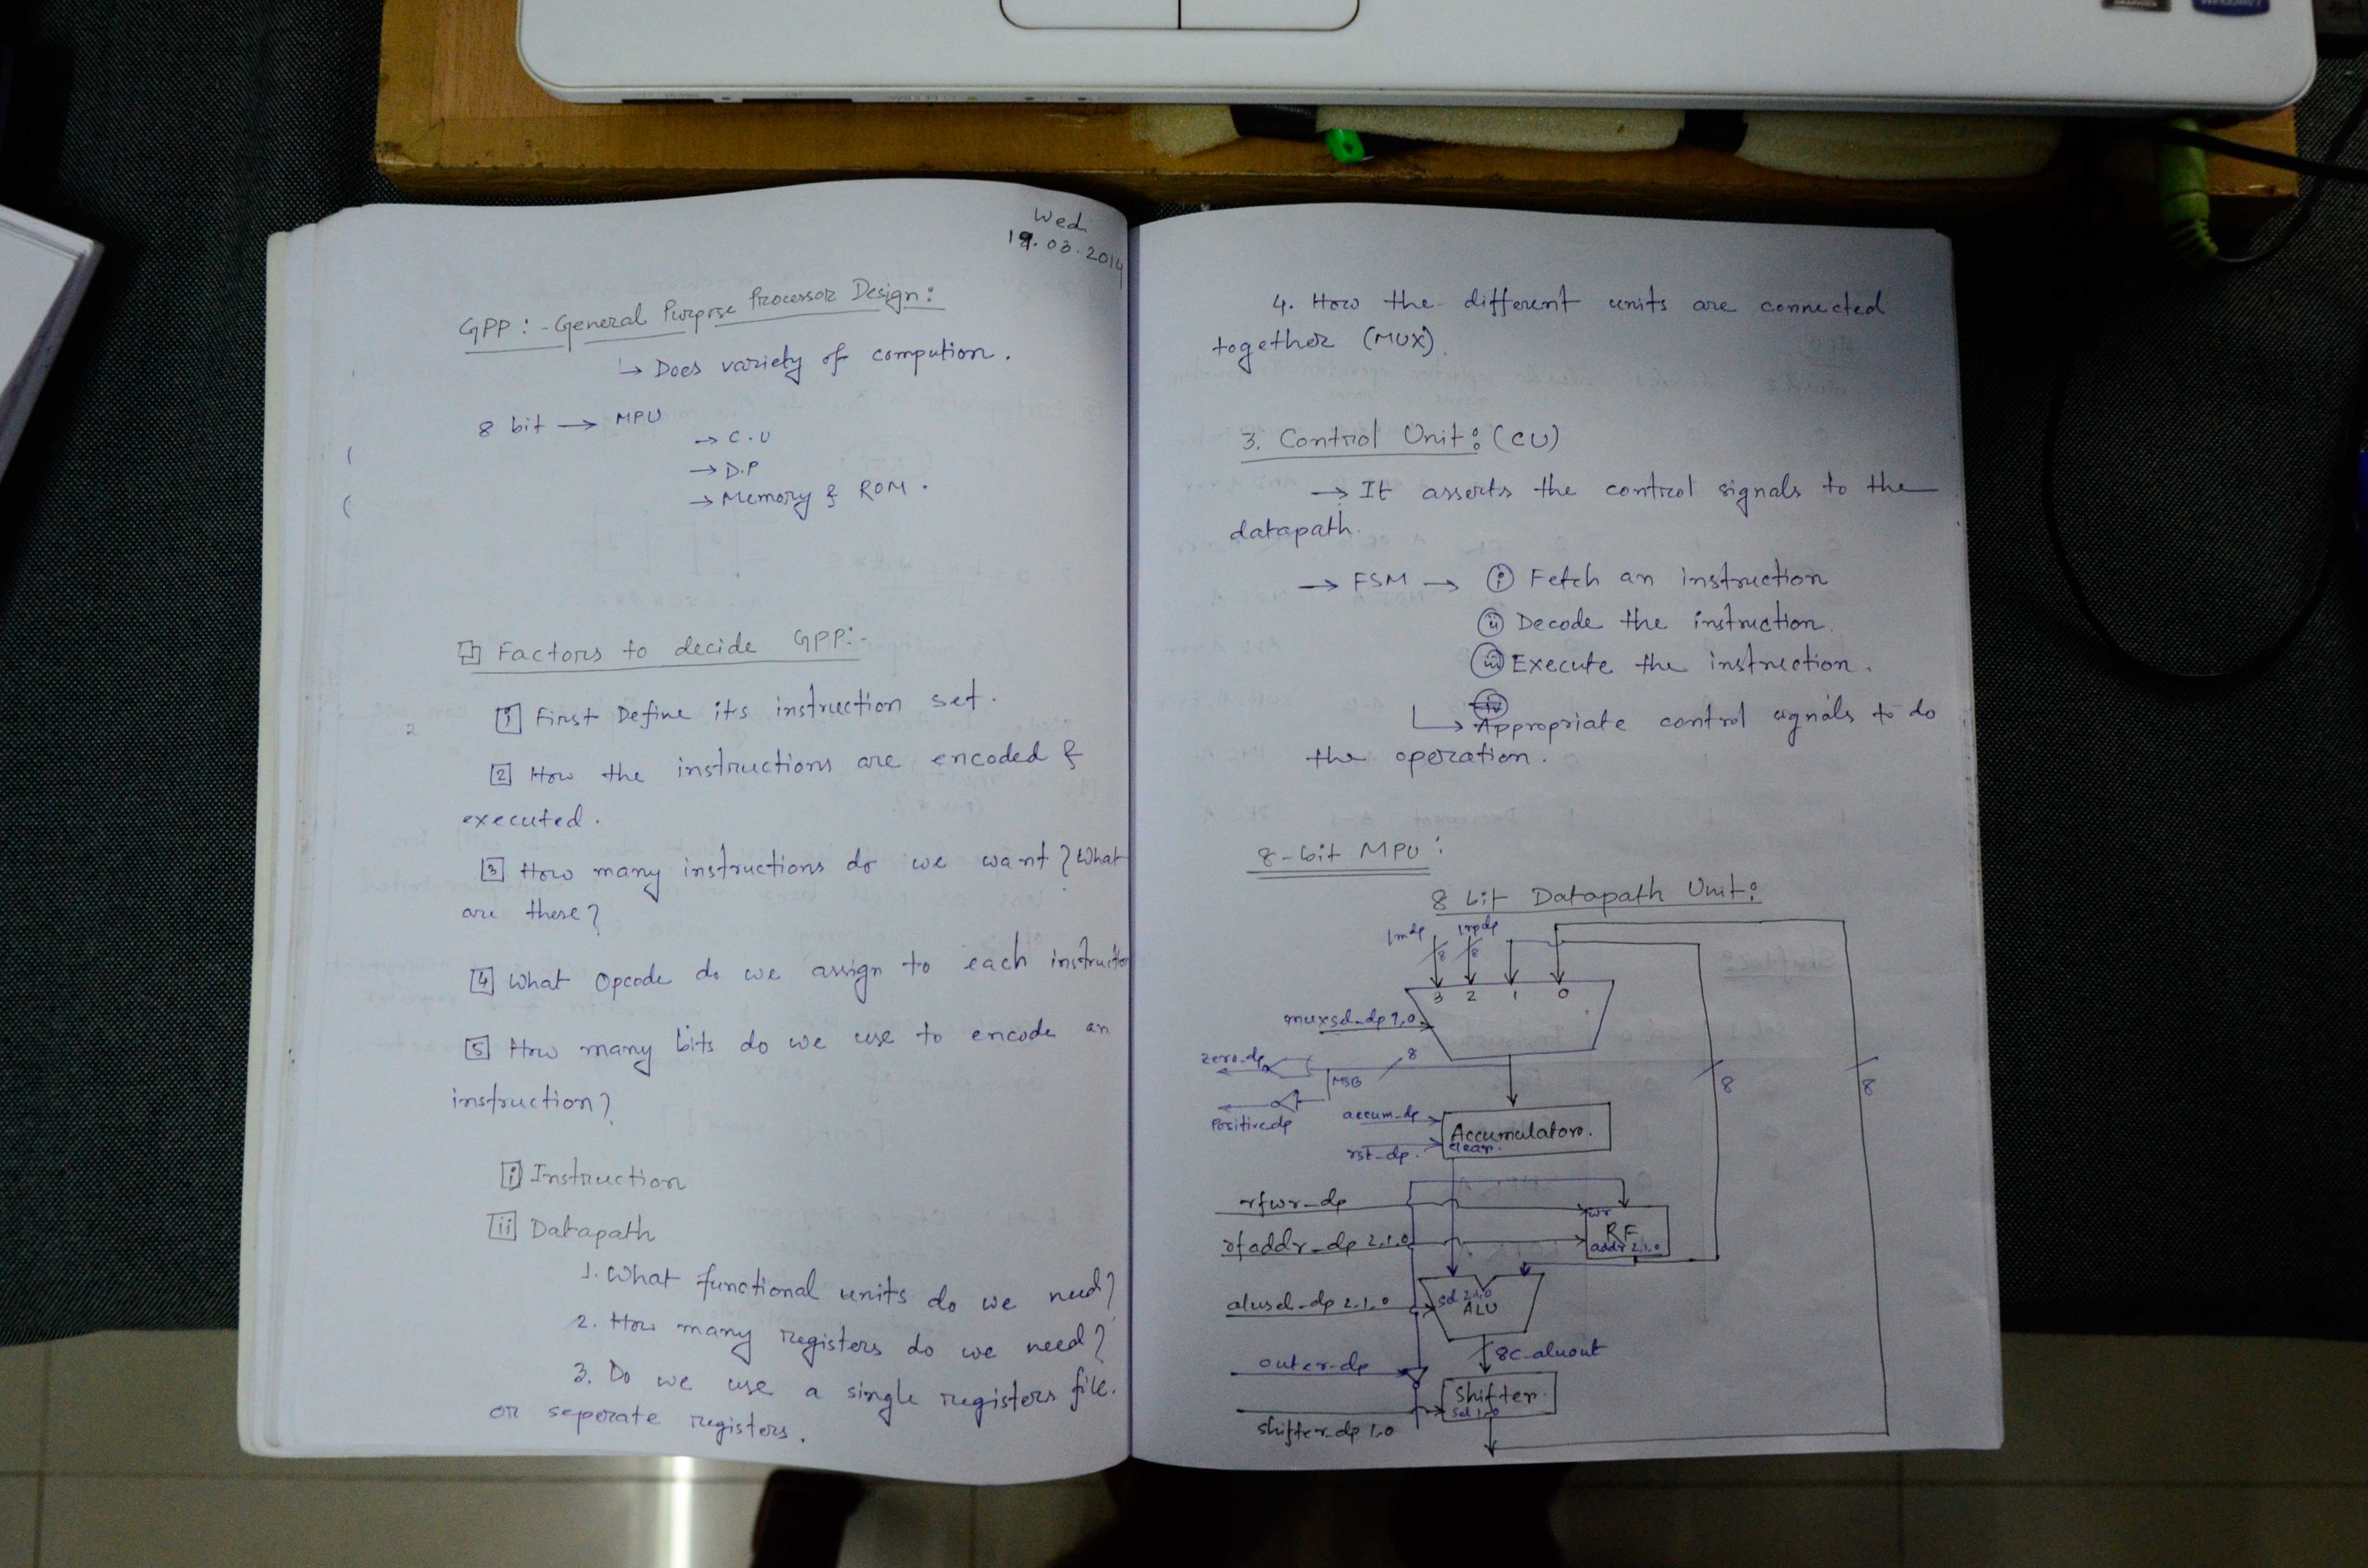 Wed.
19.03.2014
GPP:- General Purpose Processor Design:
↳ Does variety of compution.
8 bit → MPU
→ C.U
→ D.P
→ Memory & ROM.
Factors to decide GPP:-
i First Define its instruction set.
2 How the instructions are encoded &
executed.
3 How many instructions do we want? What
are these?
4 What Opcode do we assign to each instruction
5 How many bits do we use to encode an
instruction?
i Instruction
ii Datapath
1. What functional units do we need?
2. How many registers do we need?
3. Do we use a single registers file.
or seperate registers.
4. How the different units are connected
together (MUX)
3. Control Unit: (CU)
→ It asserts the control signals to the
datapath.
→ FSM → i Fetch an instruction
ii Decode the instruction.
iii Execute the instruction.
iv
↳ Appropriate control signals to do
the operation.
8-bit MPU:
8 bit Datapath Unit:
8 8
3 2 1 0
muxsel_dp 1,0
zero_dp 8
MSB 8 8
Positive_dp
accum_dp
Accumulator.
rst_dp. clear.
rfwr_dp
wr
RF
rfaddr_dp 2,1,0
addr 2,1,0
alusel_dp 2,1,0
sel 2,1,0
ALU
8 C_aluout
outen_dp
Shifter.
sel 1,0
shifter_dp 1,0